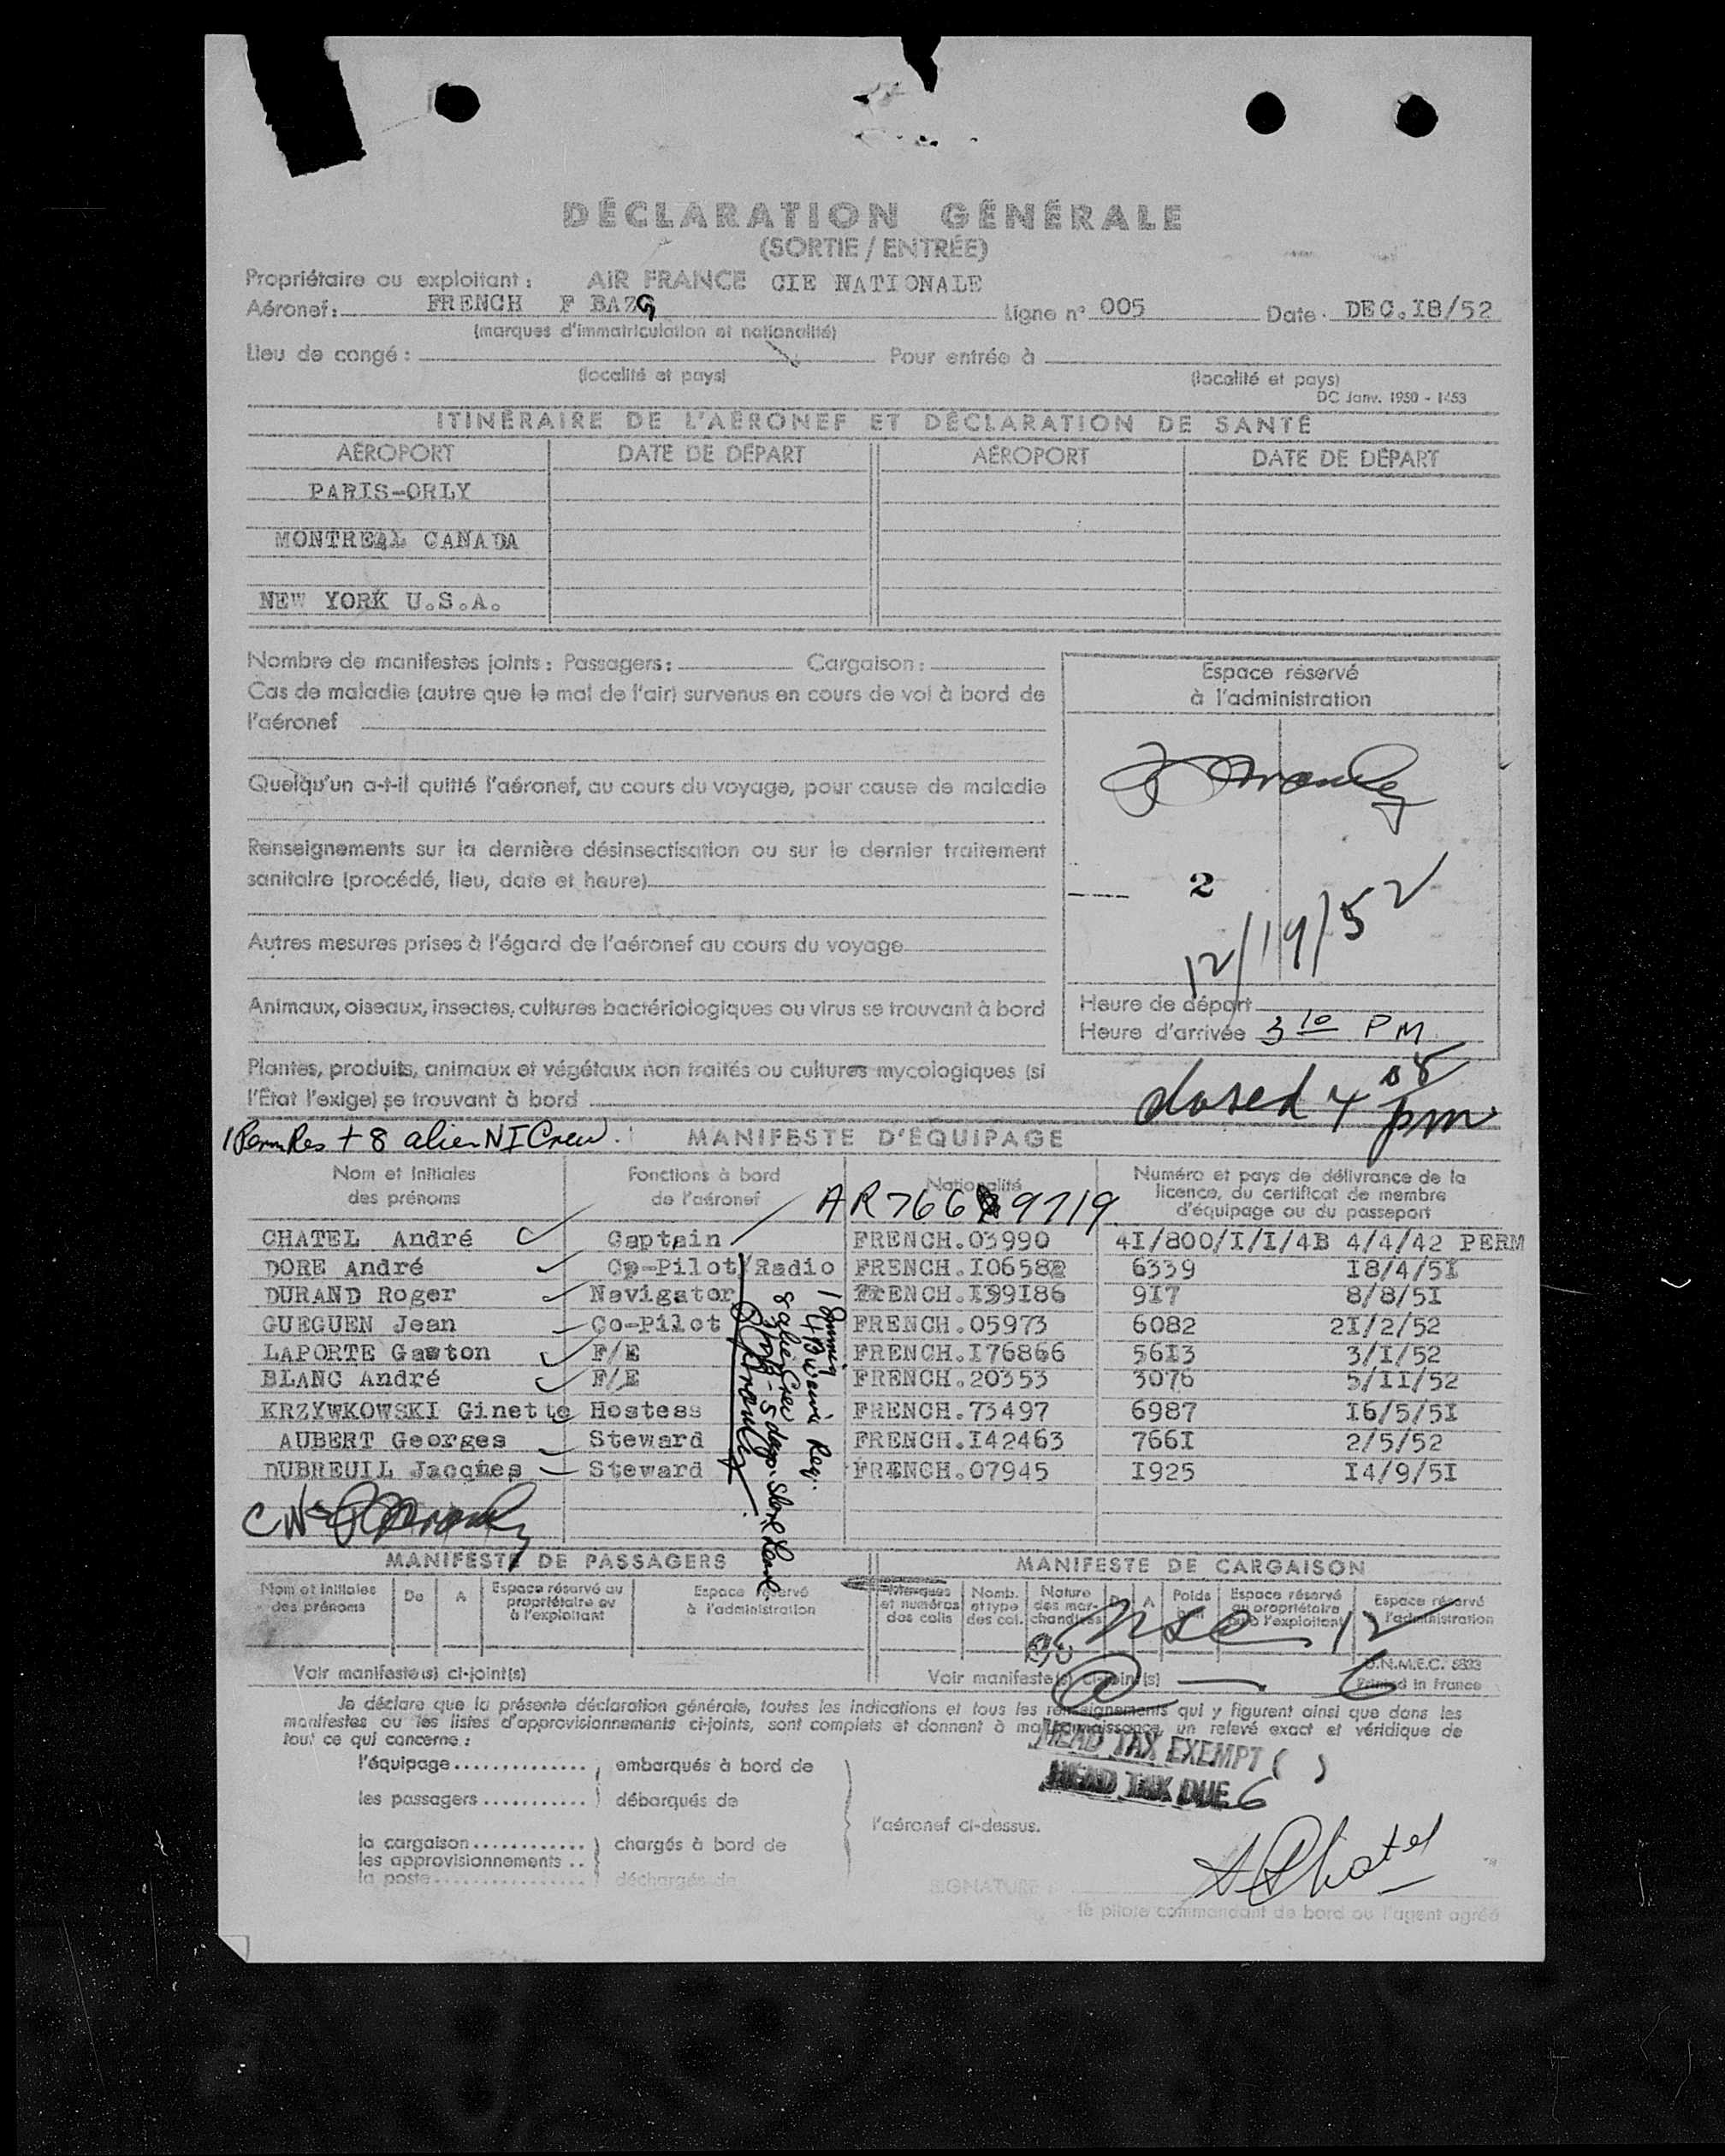 DÉCLARATION GÉNÉRALE
(SORTIE / ENTRÉE)
Propriétaire ou exploitant : AIR FRANCE CIE NATIONALE
Aéronef: FRENCH F BAZG Ligne n° 005 Date. DEC.I8/52
(marques d'immatriculation et nationalité)
Lieu de congé : Pour entrée à
(localité et pays) (localité et pays)
DC Janv. 1950 - 1453
ITINÉRAIRE DE L'AÉRONEF ET DÉCLARATION DE SANTÉ
AÉROPORT DATE DE DÉPART AÉROPORT DATE DE DÉPART
PARIS-ORLY
MONTREAL CANADA
NEW YORK U.S.A.
Nombre de manifestes joints : Passagers : Cargaison :
Cas de maladie (autre que le mal de l'air) survenus en cours de vol à bord de
l'aéronef
Quelqu'un a-t-il quitté l'aéronef, au cours du voyage, pour cause de maladie
Renseignements sur la dernière désinsectisation ou sur le dernier traitement
sanitaire (procédé, lieu, date et heure)
Autres mesures prises à l'égard de l'aéronef au cours du voyage
Animaux, oiseaux, insectes, cultures bactériologiques ou virus se trouvant à bord
Plantes, produits, animaux et végétaux non traités ou cultures mycologiques (si
l'État l'exige) se trouvant à bord
Espace réservé
à l'administration
2
12/19/52
Heure de départ
Heure d'arrivée 3 10 PM
closed 4 08 pm
1 Perm Res + 8 alien NI Crew. MANIFESTE D'ÉQUIPAGE
Nom et Initiales des prénoms Fonctions à bord de l'aéronef Nationalité Numéro et pays de délivrance de la licence, du certificat de membre d'équipage ou du passeport
CHATEL André Captain FRENCH.03990 4I/800/I/I/4B 4/4/42 PERM
DORE André Co-Pilot/Radio FRENCH.I06582 6339 I8/4/5I
DURAND Roger Navigator FRENCH.I39I86 9I7 8/8/5I
GUEGUEN Jean Co-Pilot FRENCH.05973 6082 2I/2/52
LAPORTE Gaston F/E FRENCH.I76866 56I3 3/I/52
BLANC André F/E FRENCH.20353 3076 5/II/52
KRZYWKOWSKI Ginette Hostess FRENCH.73497 6987 I6/5/5I
AUBERT Georges Steward FRENCH.I42463 766I 2/5/52
DUBREUIL Jacques Steward FRENCH.07945 I925 I4/9/5I
MANIFESTE DE PASSAGERS MANIFESTE DE CARGAISON
Nom et Initiales des prénoms De A Espace réservé au propriétaire ou à l'exploitant Espace réservé à l'administration Marques et numéros des colis Nomb. et type des col. Nature des marchandises De A Poids Espace réservé au propriétaire ou à l'exploitant Espace réservé à l'administration
Voir manifeste(s) ci-joint(s) Voir manifeste(s) ci-joint(s)
Printed in France
Je déclare que la présente déclaration générale, toutes les indications et tous les renseignements qui y figurent ainsi que dans les
manifestes ou les listes d'approvisionnements ci-joints, sont complets et donnent à ma connaissance, un relevé exact et véridique de
tout ce qui concerne :
l'équipage.............. embarqués à bord de
les passagers ........... débarqués de
l'aéronef ci-dessus.
la cargaison............ chargés à bord de
les approvisionnements ..
la poste................ déchargés de
HEAD TAX EXEMPT ( )
HEAD TAX DUE 6
A Chatel
SIGNATURE
le pilote commandant de bord ou l'agent agréé